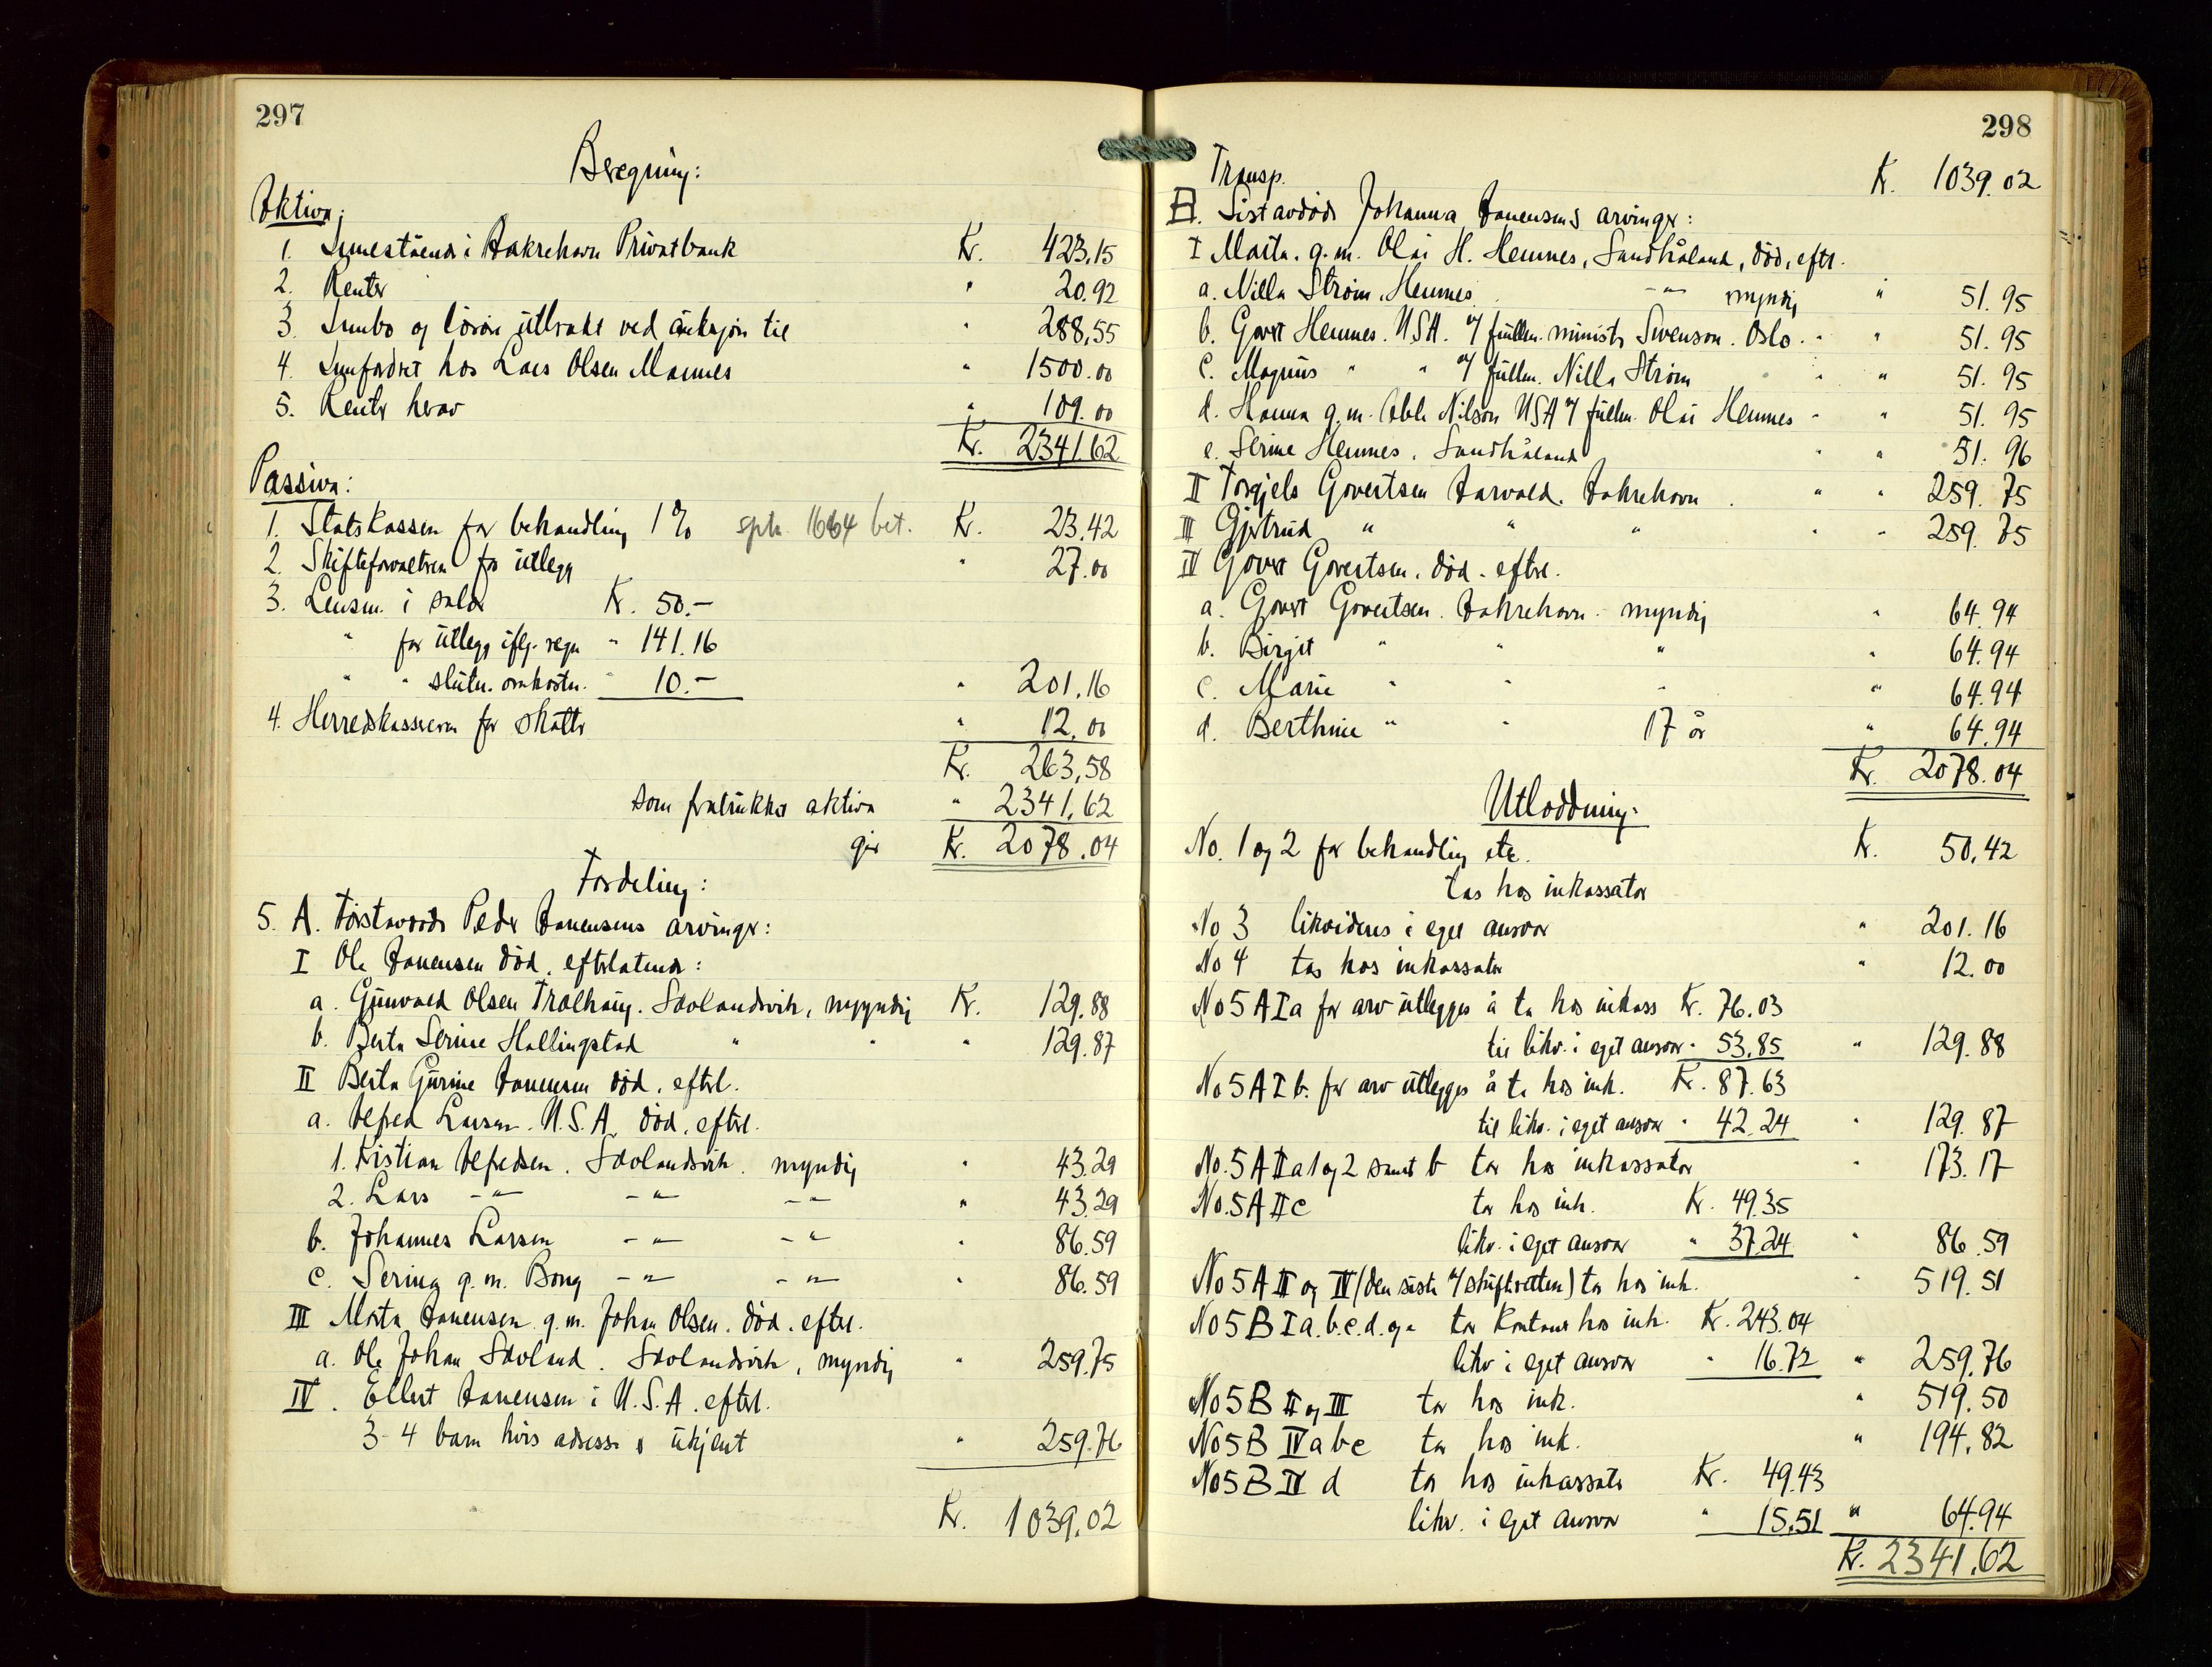 297
Beregning:
Aktiva:
1. Innestående i Aakrehavn Privatbank Kr. 423,15
2. Renter " 20.92
3. Innbo og løsøre utbrakt ved auksjon til " 288,55
4. Innfordret hos Lars Olsen Mannes " 1500.00
5. Renter herav " 109.00
Kr. 2341.62
Passiva:
1. Statskassen for behandling 1% 1664 bet. Kr. 23.42
2. Skifteforvalteren for utlegg " 27.00
3. Lensm. i salær Kr. 50.-
" for utlegg iflg. regn " 141.16
" " slutn. omkostn. " 10.- " 201,16
4. Herredskassereren for skatter " 12,00
Kr. 263,58
som fratrukket aktiva " 2341,62
gir Kr. 2078.04
Fordeling:
5. A. Førstavdøde Peder Hanensens arvinger:
I Ole Hanensen død, efterlatende:
a. Gunvald Olsen Tralhaug. Skolandsvik, myndig Kr. 129.88
b. Berta Serine Hallingstad " " " 129.87
II Berta Gurine Hanensen død. efterl.
a. Alfred Larsen. U.S.A. død. efterl.
1. Kristian Alfredsen. Skolandsvik. myndig " 43.29
2. Lars -"- -"- -"- " 43.29
b. Johannes Larsen -"- -"- " 86.59
c. Serina g.m. Bong -"- -"- " 86.59
III Marta Hanensen g.m. Johan Olsen. død. efterl.
a. Ole Johan Skoland. Skolandsvik, myndig " 259.75
IV. Ellert Hanensen i U.S.A. efterl.
3-4 barn hvis adresse er ukjent " 259.76
Kr. 1039.02
298
Transp. Kr. 1039.02
B. Sistavdøde Johanna Hanensens arvinger:
I Marta. g.m. Olai H. Hemnes, Sandhåland, død, efterl.
a. Nilla Strøm, Hemnes -"- myndig " 51.95
b. Govert Hemnes. USA. v/ fullm. minister Swenson. Oslo. " " 51.95
c. Magnus " " v/ fullm. Nilla Strøm " " 51.95
d. Hanna g.m. Able Nilson USA v/ fullm. Olai Hemnes " " 51.95
e. Serine Hemnes. Sandhåland " " 51.96
II Torgjels Govertsen Harvald. Aakrehavn " " 259.75
III Gjertrud " " " " " 259.75
IV Govert Govertsen. død. efterl.
a. Govert Govertsen. Aakrehavn. myndig " 64.94
b. Birgit " " " " 64.94
c. Marie " " " " 64.94
d. Berthine " " 17 år " 64.94
Kr. 2078.04
Utloddning:
No. 1 og 2 for behandling etc. Kr. 50,42
tas hos inkassator
No 3 likvideres i eget ansvar " 201.16
No 4 tas hos inkassator " 12.00
No 5 A I a for arv utlegges å ta hos inkass Kr. 76.03
til likv. i eget ansvar " 53.85 " 129.88
No 5 A I b. for arv utlegges å ta hos ink. Kr. 87.63
til likv. i eget ansvar " 42.24 " 129.87
No. 5 A II a 1 og 2 samt b tar hos inkassator " 173.17
No. 5 A II c tar hos ink. Kr. 49.35
likv. i eget ansvar " 37.24 " 86.59
No 5 A III og IV (den siste v/ skifteretten) tar hos ink. " 519.51
No 5 B I a. b. c. d. og e tar kontant hos ink. Kr. 243.04
likv i eget ansvar " 16.72 " 259.76
No 5 B II og III tar hos ink. " 519.50
No 5 B IV a b c tar hos ink. " 194.82
No 5 B IV d tar hos inkassator Kr. 49.43
likv. i eget ansvar " 15.51 " 64.94
Kr. 2341.62